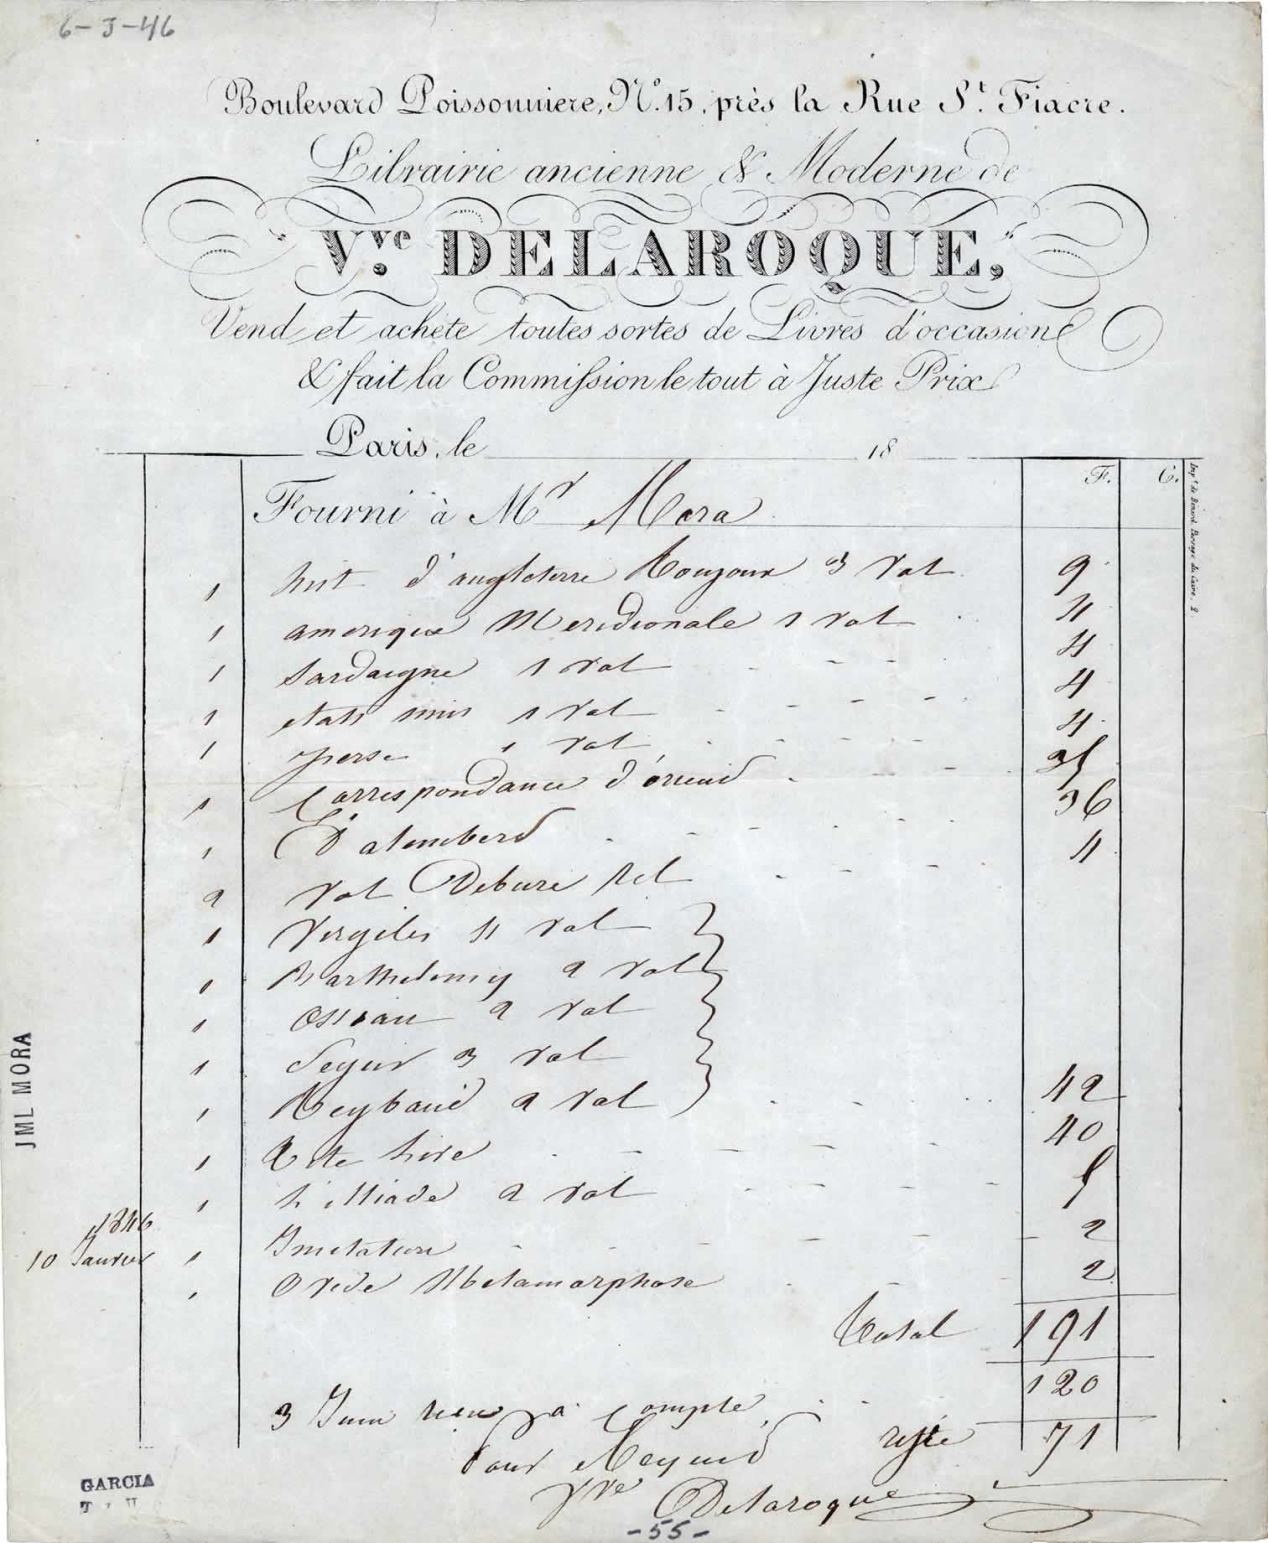 6-3-46
Boulevard Poissonniere, N.° 15, près la Rue S.t Fiacre.
Librairie ancienne & Moderne de
V.ve DELAROQUE,
Vend et achete toutes sortes de Livres d'occasion
& fait la Commission le tout à Juste Prix
Paris, le 18
F. C.
Fourni à Mr Mora
1 hist d'angleterre 3 Vol 9
1 amerique Meridionale 1 Vol 4
1 Sardaigne 1 Vol 4
1 etats unis 1 Vol 4
1 perse 1 Vol 4
1 Correspondance d'orient 35
1 D'alembert 36
2 Vol Debure rel 4
1 Virgiles 4 Vol
1 Barthelemy 2 Vol
1 Ossian 2 Vol
1 Segur 3 Vol
1 Reybaud 2 Vol 42
1 Tite live 40
1 L'illiade 2 Vol 5
1846
10 Janvier 1 Imitation 2
1 Ovide Metamorphose 2
Total 191
3 Juin recu a compte 120
Pour reste 71
Vve Delaroque
JML MORA
GARCIA
-55-